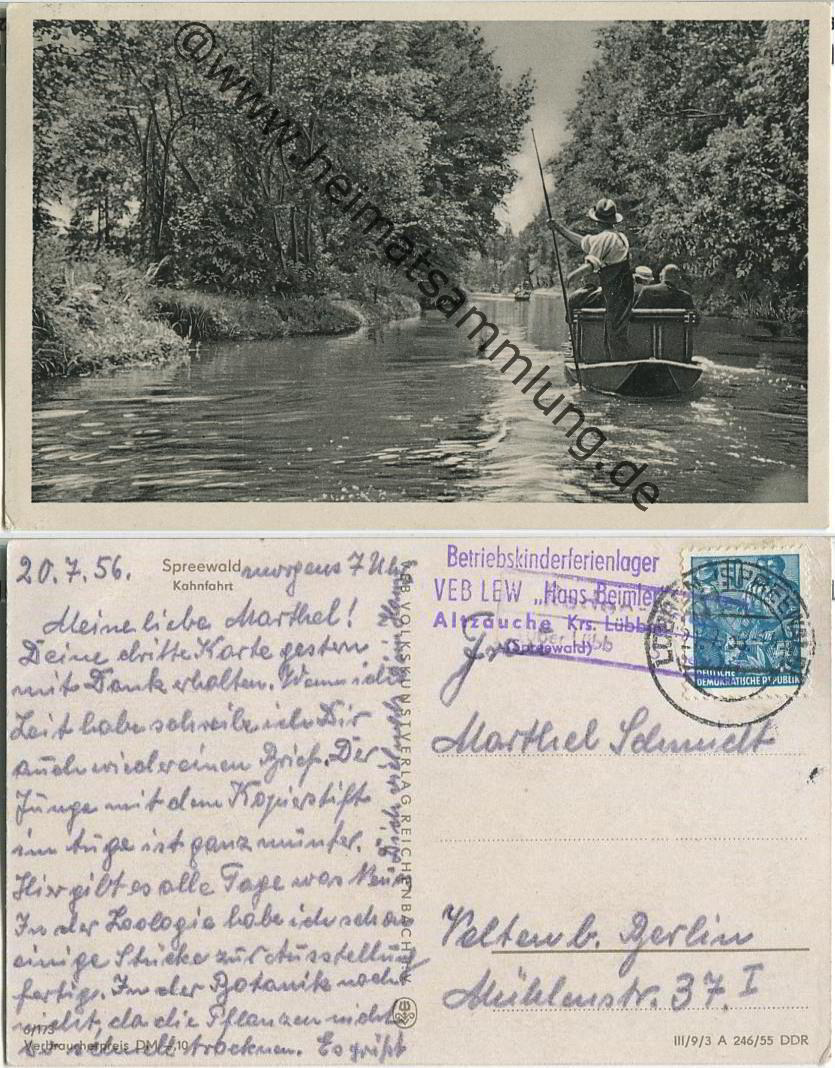 @www.heimatsammlung.de
20.7.56.
Spreewald
Kahnfahrt
morgens 7 Uhr
Meine liebe Marthel!
Deine dritte Karte gestern
mit Dank erhalten. Wenn ich
Zeit habe schreibe ich Dir
auch wieder einen Brief. Der
Junge mit dem Kopierstift
im Auge ist ganz munter.
Hier gibt es alle Tage was Neues
In der Zoologie habe ich schon
einige Stücke zur Ausstellung
fertig. In der Botanik noch
nicht, da die Pflanzen nicht
so schnell trocknen. Es grüßt
Dich
6/173
Verbraucherpreis DM -,10
VEB VOLKSKUNSTVERLAG REICHENBACH i. V.
Betriebskinderferienlager
VEB LEW „Hans Beimler
Altzauche Krs. Lübben
(Spreewald)
über Lübb
LÜBBEN (SPREEWALD)
DEUTSCHE
DEMOKRATISCHE REPUBLIK
Frau
Marthel Schmidt
Velten b. Berlin
Mühlenstr. 37 I
III/9/3 A 246/55 DDR